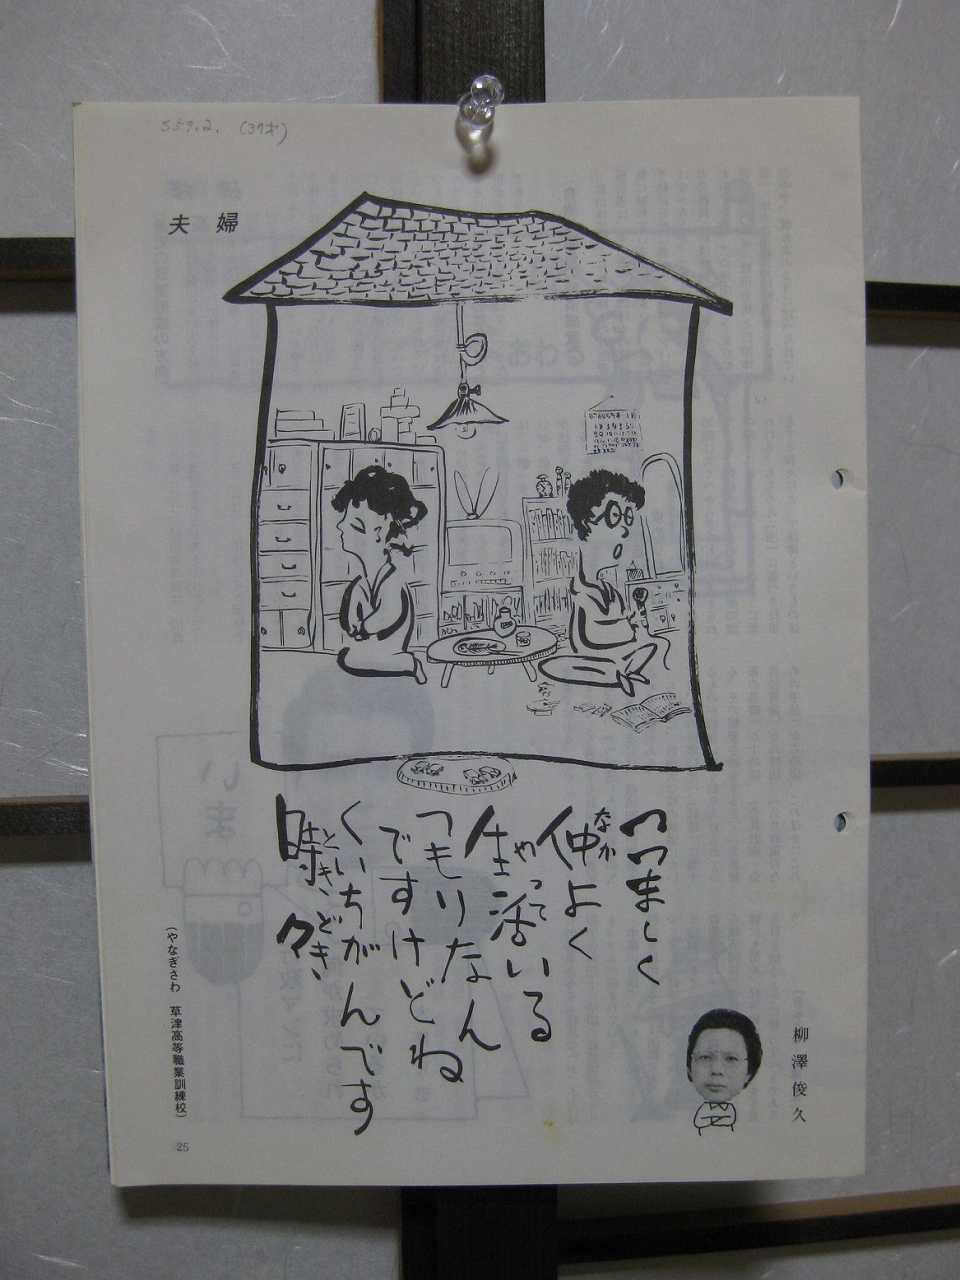 S59.2. (37才)
夫婦
つつましく
仲よく
なか
生活いる
やって
つもりなん
ですけどね
くいちがんです
時々
ときどき
柳澤俊久
(やなぎさわ 草津高等職業訓練校)
25